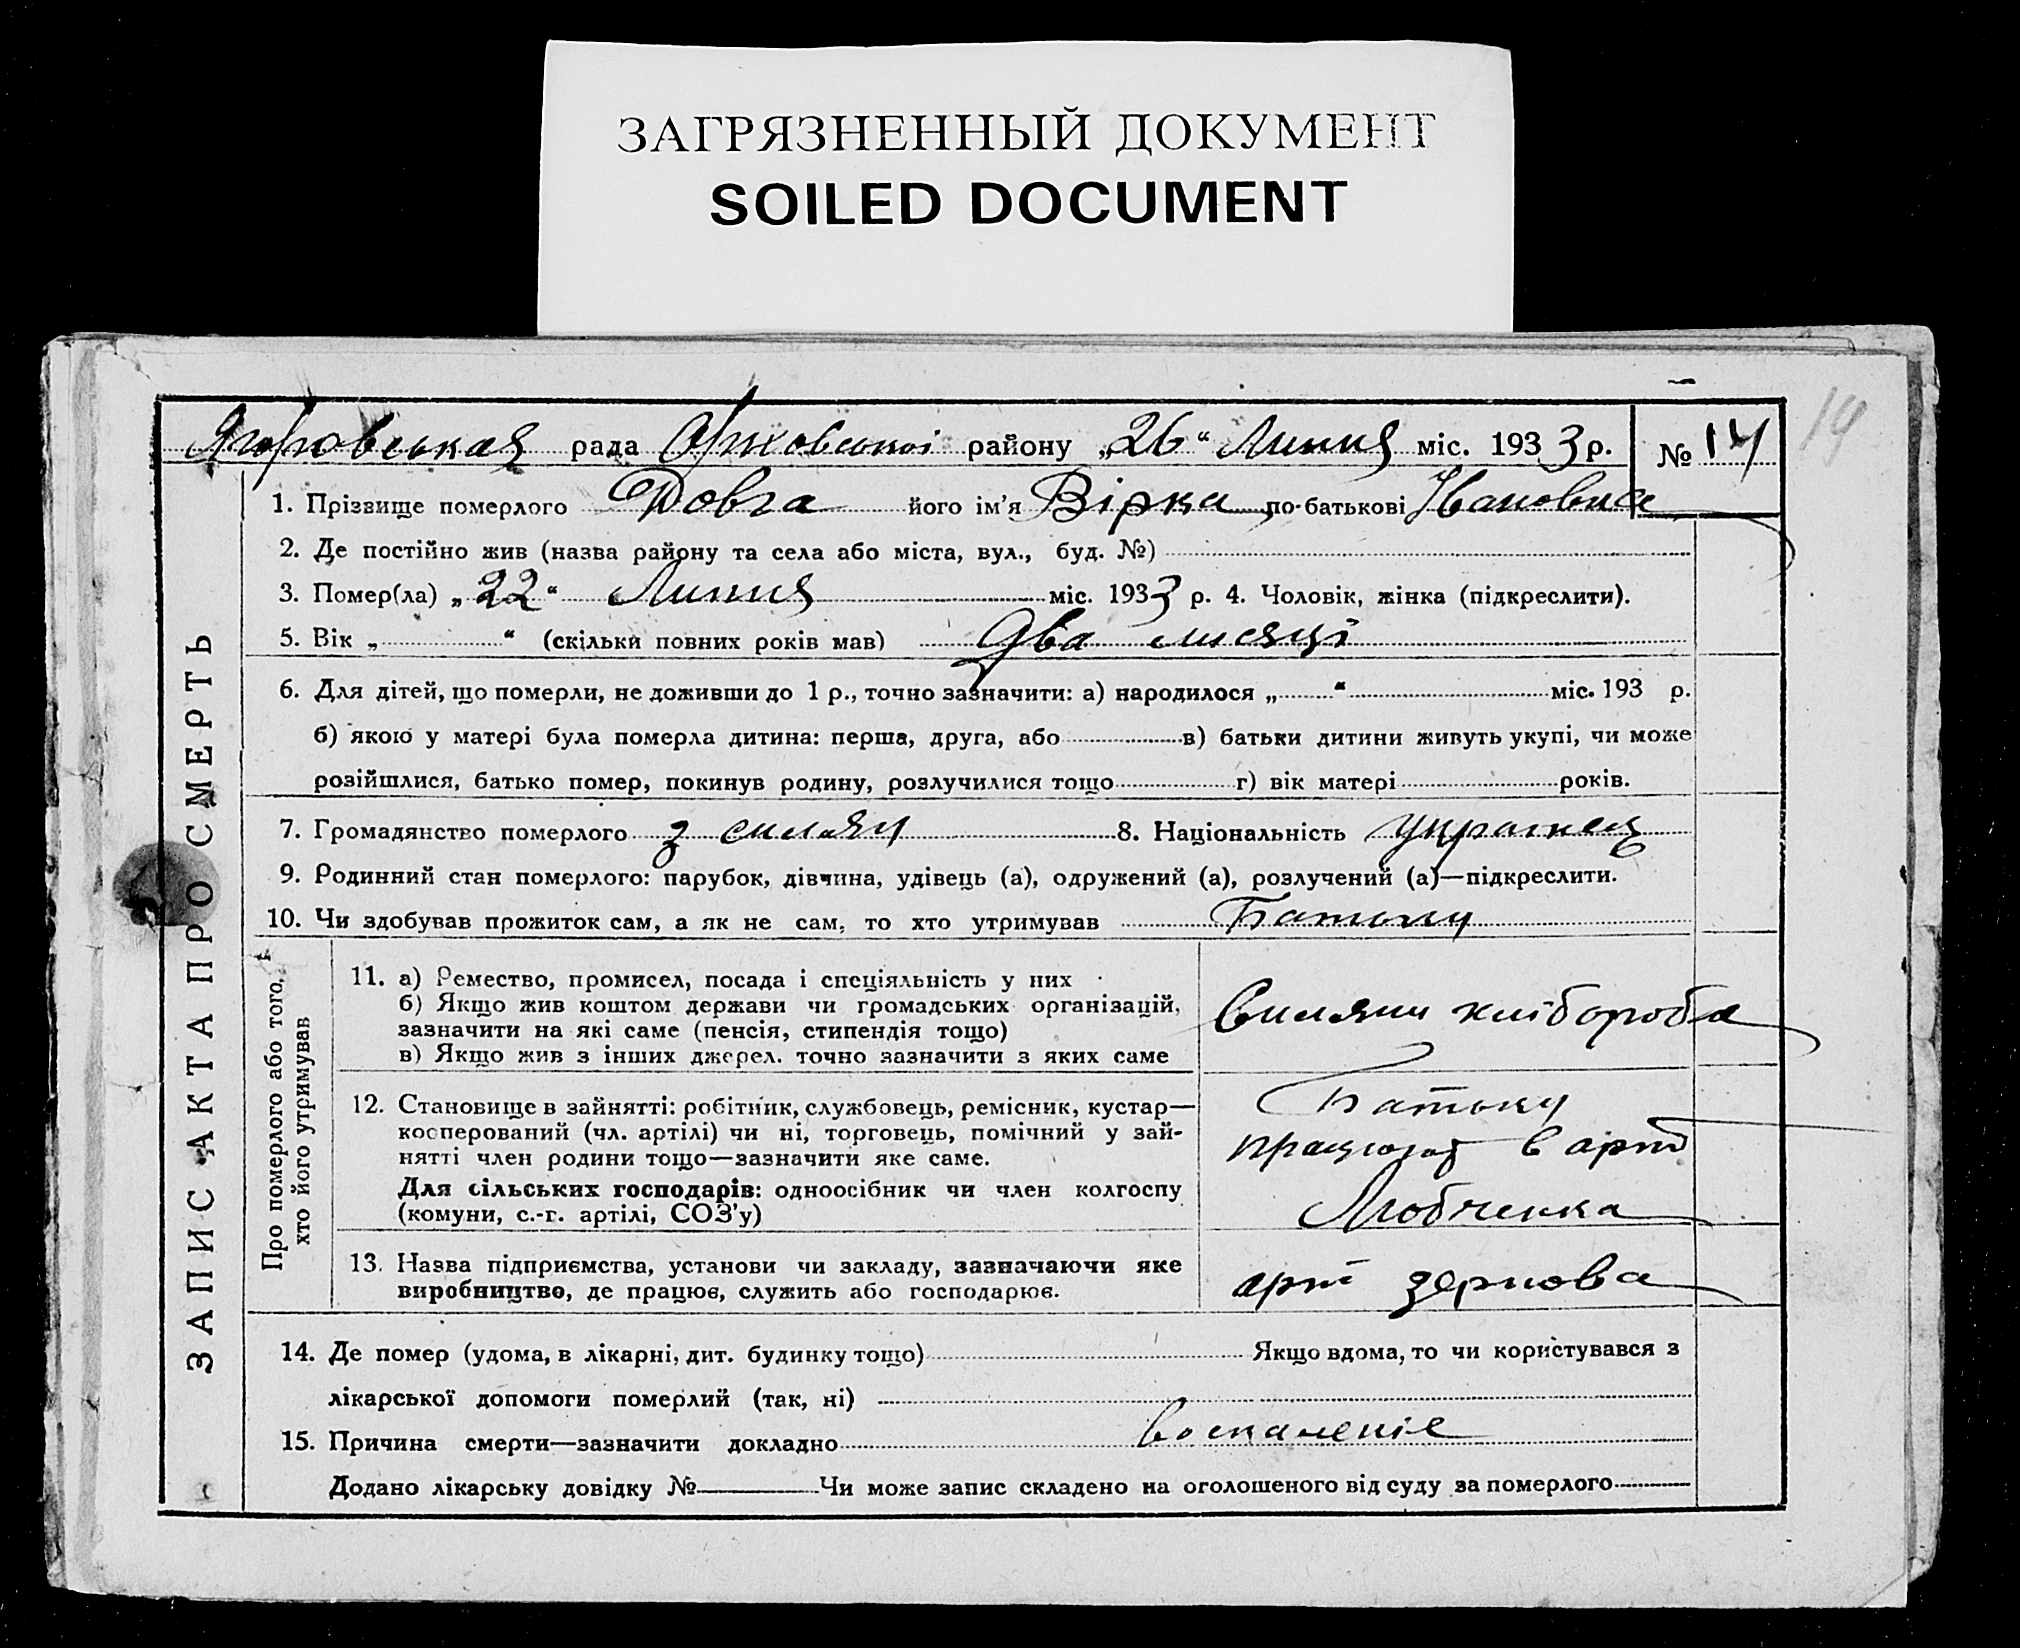 ЗАГРЯЗНЕННЫЙ ДОКУМЕНТ
SOILED DOCUMENT
19
рада району „26“ Липня міс. 1933 р. № 14
1. Прізвище померлого Довга його ім’я Вірка по-батькові Івановна
2. Де постійно жив (назва району та села або міста, вул., буд. №)
3. Помер(ла) „22“ Липня міс. 1933 р. 4. Чоловік, жінка (підкреслити).
5. Вік „ “ (скільки повних років мав) Два місяці
6. Для дітей, що померли, не доживши до 1 р., точно зазначити: а) народилося „ “ міс. 193 р.
б) якою у матері була померла дитина: перша, друга, або в) батьки дитини живуть укупі, чи може
розійшлися, батько помер, покинув родину, розлучилися тощо г) вік матері років.
7. Громадянство померлого з силян 8. Національність
9. Родинний стан померлого: парубок, дівчина, удівець (а), одружений (а), розлучений (а)—підкреслити.
10. Чи здобував прожиток сам, а як не сам, то хто утримував Батьки
ЗАПИС АКТА ПРО СМЕРТЬ
Про померлого або того,
хто його утримував
11. а) Ремество, промисел, посада і спеціяльність у них
б) Якщо жив коштом держави чи громадських організацій,
зазначити на які саме (пенсія, стипендія тощо)
в) Якщо жив з інших джерел. точно зазначити з яких саме
хлібороба
12. Становище в зайнятті: робітник, службовець, ремісник, кустар—
кооперований (чл. артілі) чи ні, торговець, помічний у зай-
нятті член родини тощо—зазначити яке саме.
Для сільських господарів: одноосібник чи член колгоспу
(комуни, с.-г. артілі, СОЗ’у)
Батьки
працюют в арт
Любченка
13. Назва підприємства, установи чи закладу, зазначаючи яке
виробництво, де працює, служить або господарює.
арт зернова
14. Де помер (удома, в лікарні, дит. будинку тощо) Якщо вдома, то чи користувався з
лікарської допомоги померлий (так, ні)
15. Причина смерти—зазначити докладно воспаленіе
Додано лікарську довідку № Чи може запис складено на оголошеного від суду за померлого